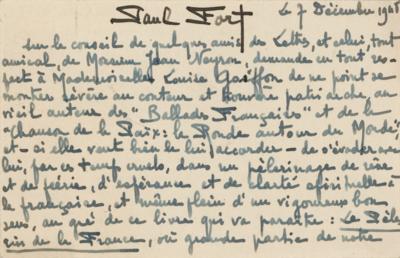 Paul Fort
Le 7 Décembre 1948
sur le conseil de quelques amis des Lettres, et celui, tout
amical, de Monsieur Jean Veyron, demande en tout res-
pect à Mademoiselle Louise Gaiffon de ne point se
montrer sévère au conteur et trouvère patriarche, au
vieil auteur des "Ballades Françaises" et de la
"Chanson de la Paix: la Ronde autour du Monde,"
et - si elle veut bien le lui accorder - de s'évader avec
lui, par ces temps cruels, dans un pèlerinage de rêve
et de féerie, d'espérance et de clarté spirituelle à
la française, et même plein d'un vigoureux bon
sens, au gré de ce livre qui va paraître: Le Pèle-
rin de la France, où grande partie de notre